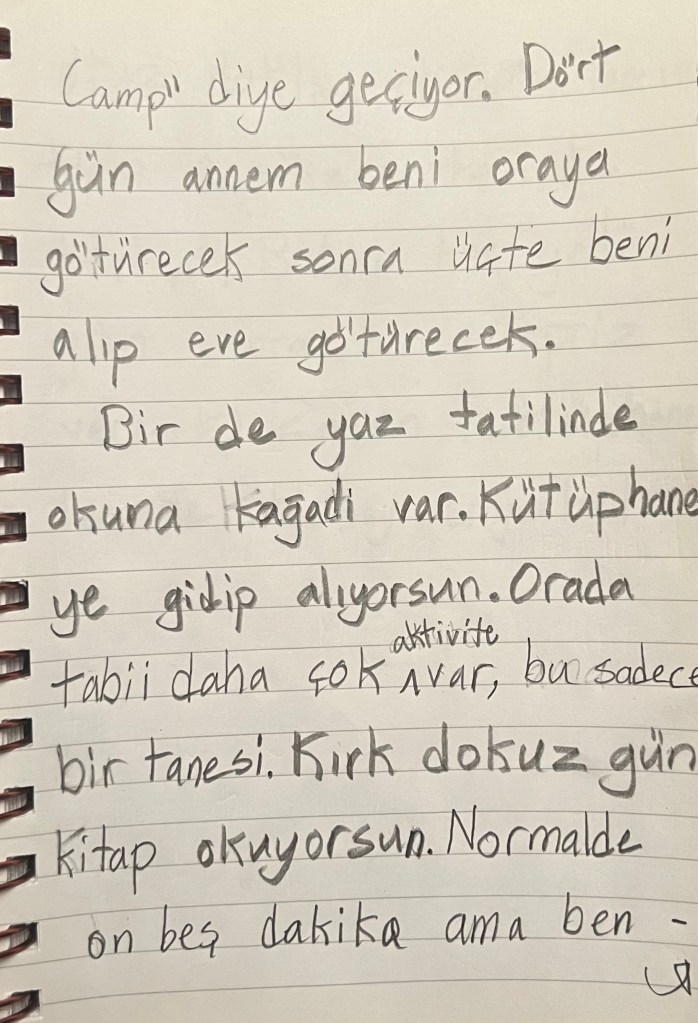 Camp" diye geçiyor. Dört
gün annem beni oraya
götürecek sonra üçte beni
alıp eve götürecek.
Bir de yaz tatilinde
okuna kağadi var. Kütüphane
ye gidip alıyorsun. Orada
aktivite
tabii daha çok ʌ var, bu sadece
bir tanesi. Kırk dokuz gün
kitap okuyorsun. Normalde
on beş dakika ama ben -